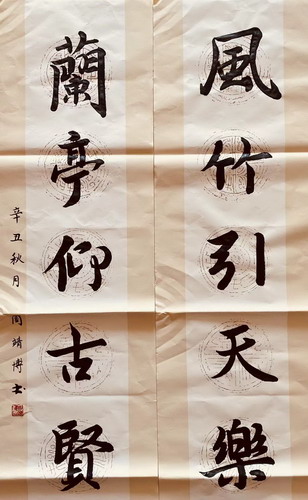 風竹引天樂
蘭亭仰古賢
辛丑秋月 周靖博书